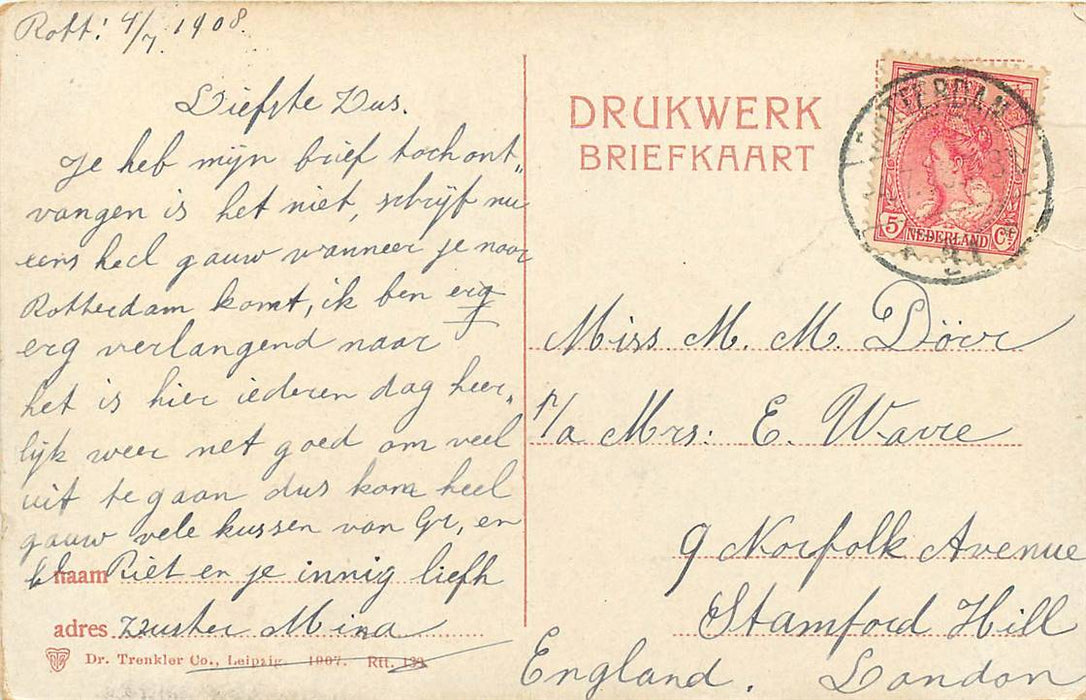 Rott: 4/7 1908.
Liefste Zus.
Je heb mijn brief toch ont„
vangen is het niet, schrijf nu
eens heel gauw wanneer je naar
Rotterdam komt, ik ben erg
erg verlangend naar
het is hier iederen dag heer„
lijk weer net goed om veel
uit te gaan dus kom heel
gauw vele kussen van Gr, en
naam Riet en je innig liefh
adres Zuster Mina
Dr. Trenkler Co., Leipzig. 1907. Rtt.
DRUKWERK
BRIEFKAART
5 NEDERLAND Ct
Miss. M. M. Dövr
p/a Mrs: E. Wavre
9 Norfolk Avenue
Stamford Hill
England. London